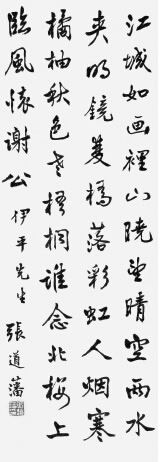 江城如画裡山曉望晴空兩水
夾明鏡雙橋落彩虹人烟寒
橘柚秋色老梧桐誰念北樓上
臨風懷謝公
伊平先生
張道藩